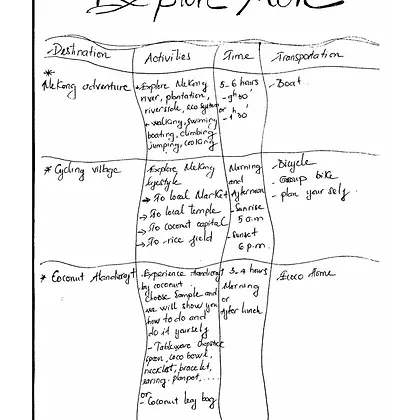 Explore More
Destination Activities Time Transportation
* Mekong adventure
- Explore Mekong
river, plantation,
riverside, eco system
- walking, swiming
boating, climbing
jumping, cooking
5-6 hours
- 9h30'
or
- 1h30'
- Boat
* Cycling village
Explore Mekong
lifestyle
→ To local Market
→ To local temple
→ To coconut capital
→ To rice field
Morning
and
Afternoon
- Sunrise
5 a.m
- Sunset
6 p.m
- Bicycle
- Group bike
- plan your self
* Coconut Handcraft
Experience Handcraft
by coconut.
choose Sample and
we will show you
how to do and
do it yourself
- Tableware
spoon, coco bowl,
necklet, bracelet,
earing,
or
- Coconut leaf bag
3-4 hours
Morning
or
After lunch
Coco home